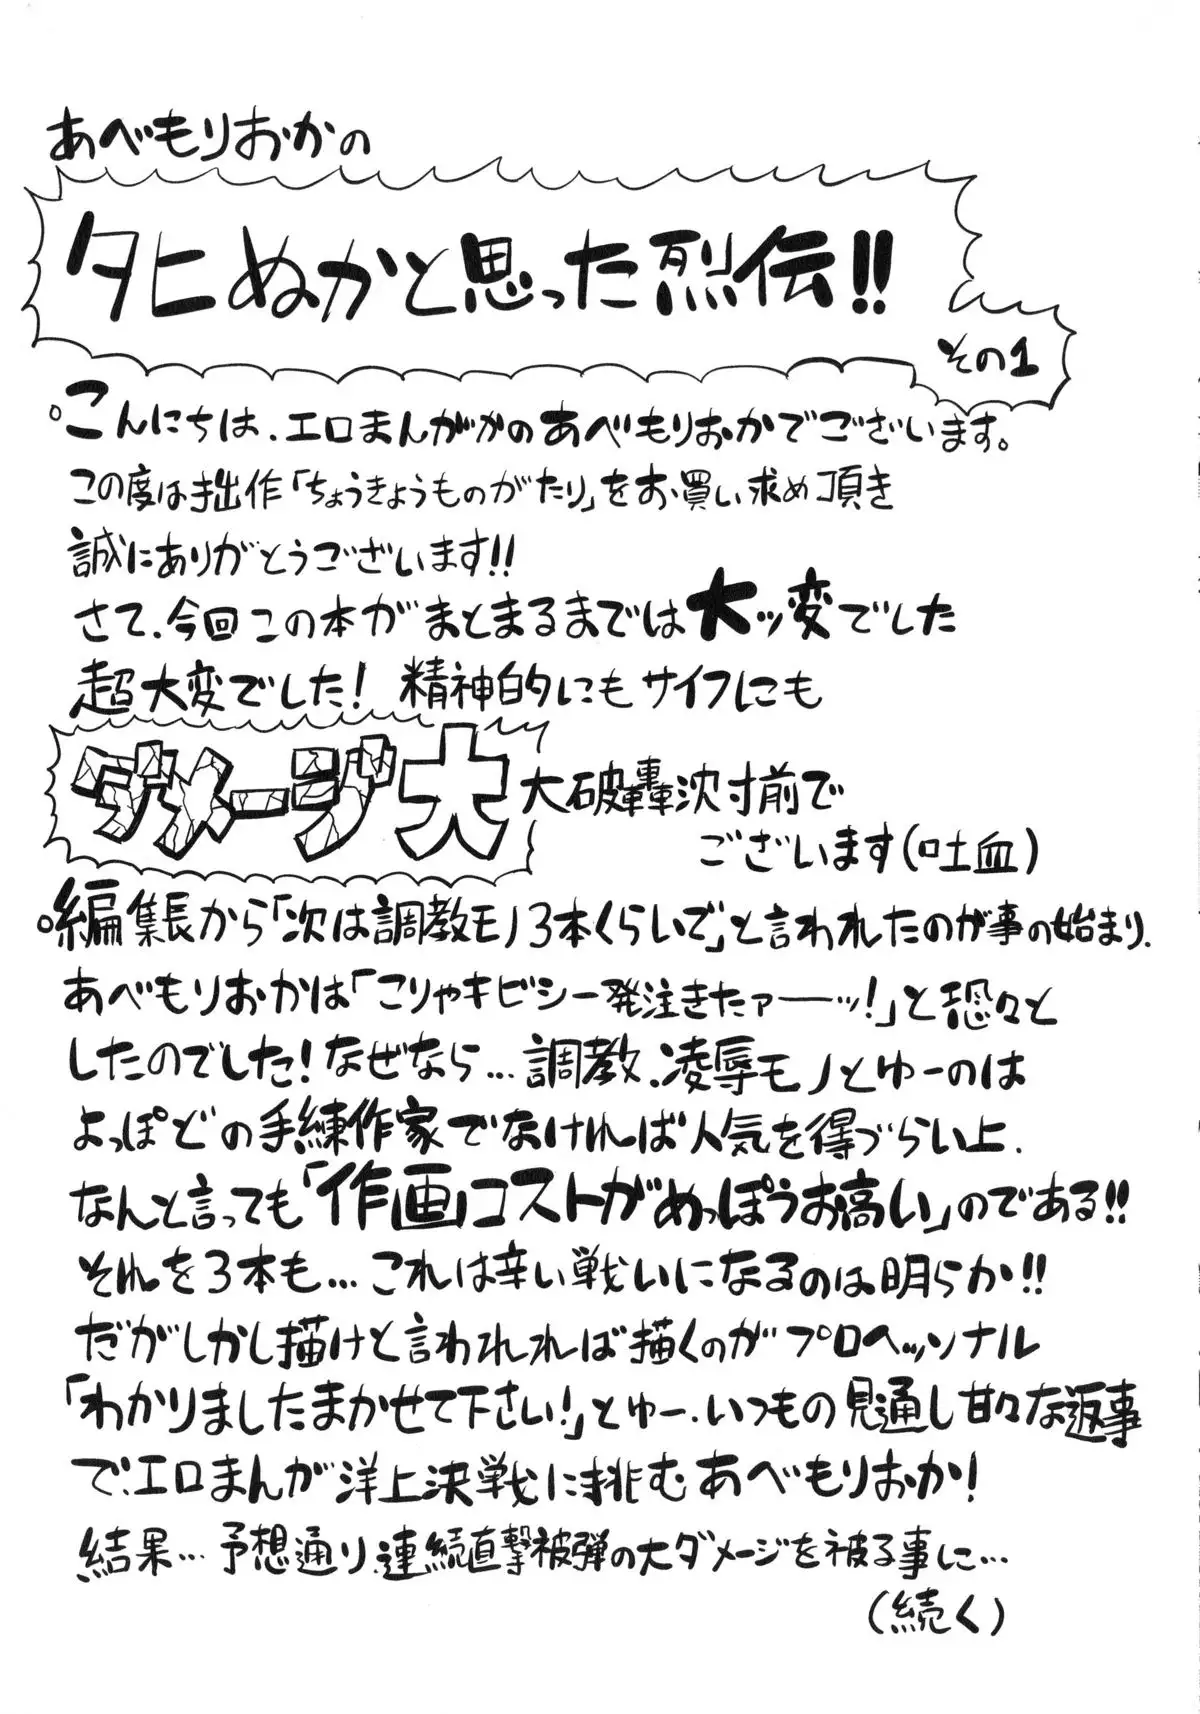 あべもりおかの
タヒぬかと思った烈伝!!
その1
。こんにちは、エロまんががのあべもりおかでございます。
この度は拙作「ちょうきょうものがたり」をお買い求め頂き
誠にありがとうございます!!
さて、今回この本がまとまるまでは大ッ変でした
超大変でした! 精神的にもサイフにも
ダメージ大
大破轟沈寸前で
ございます(吐血)
。編集長から「次は調教モノ3本くらいで」と言われたのが事の始まり、
あべもりおかは「こりゃキビシー発注きたァーーッ!」と恐々と
したのでした!なぜなら…調教、凌辱モノとゆーのは
よっぽどの手練作家でなければ人気を得づらい上、
なんと言っても「作画コストがめっぽうお高い」のである!!
それを3本も…これは辛い戦いになるのは明らか!!
だがしかし描けと言われれば描くのがプロヘッソナル
「わかりましたまかせて下さい!」とゆー、いつもの見通し甘々な返事
で、エロまんが洋上決戦に挑むあべもりおか!
結果…予想通り、連続直撃被弾の大ダメージを被る事に…
(続く)